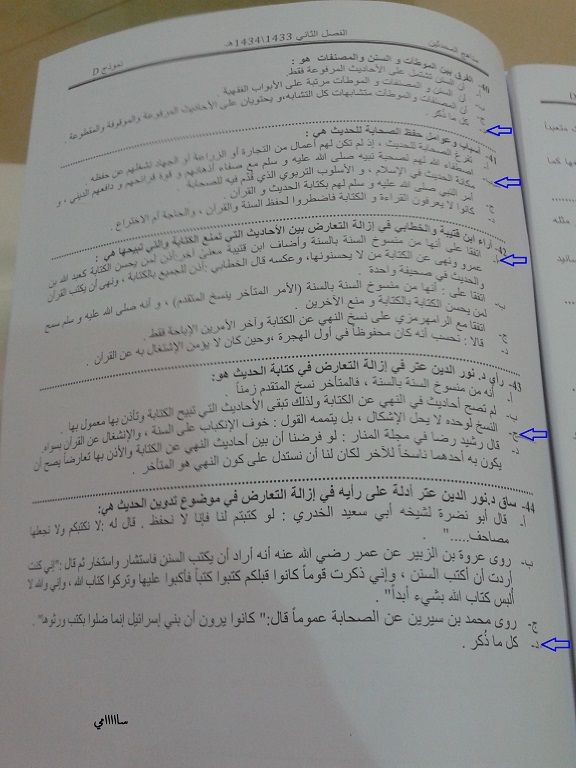 مناهج المحدثين الفصل الثاني 1433\1434هـ نموذج D
40- الفرق بين الموطآت و السنن والمصنفات هو :
أ- أن السنن تشتمل على الأحاديث المرفوعة فقط.
ب- أن السنن و المصنفات و الموطآت مرتبة على الأبواب الفقهية
ج- أن المصنفات والموطآت متشابهات كل التشابه،و يحتويان على الأحاديث المرفوعة والموقوفة والمقطوعة
د- كل ما ذكر .
41- أسباب وعوامل حفظ الصحابة للحديث هي :
أ- تفرغ الصحابة للحديث ، إذ لم تكن لهم أعمال من التجارة أو الزراعة أو الجهاد تشغلهم عن حفظه .
ب- اصطفاء الله لهم لصحبة نبيه صلى الله عليه و سلم مع صفاء أذهانهم و قوة قرائحهم و دافعهم الديني ، و
مكانة الحديث في الإسلام ، و الأسلوب التربوي الذي قُدِّم فيه للصحابة
ج- أمر النبي صلى الله عليه و سلم لهم بكتابة الحديث و القرآن .
د- كانوا لا يعرفون القراءة و الكتابة فاضطروا لحفظ السنة والقرآن ، والحاجة أم الاختراع .
42- آراء ابن قتيبة والخطابي في إزالة التعارض بين الأحاديث التي تمنع الكتابة والتي تبيحها هي :
أ- اتفقا على أنها من منسوخ السنة بالسنة وأضاف ابن قتيبة معنى آخر:أذن لمن يحسن الكتابة كعبد الله بن
عمرو ونهى عن الكتابة من لا يحسنونها، وعكسه قال الخطابي :أذن للجميع بالكتابة ، ونهى أن يكتب القرآن
والحديث في صحيفة واحدة .
ب- اتفقا على : أنها من منسوخ السنة بالسنة (الأمر المتأخر ينسخ المتقدم) ، و أنه صلى الله عليه و سلم سمح
لمن يحسن الكتابة بالكتابة و منع الآخرين .
ج- اتفقا مع الرامهرمزي على نسخ النهي عن الكتابة وآخر الأمرين الإباحة فقط .
د- قالا : نحسب أنه كان محفوظاً في أول الهجرة ،وحين كان لا يؤمن الإشتغال به عن القرآن .
43- رأي د. نور الدين عتر في إزالة التعارض في كتابة الحديث هو:
أ- أنه من منسوخ السنة بالسنة ، فالمتأخر نسخ المتقدم زمناً .
ب- لم تصح أحاديث في النهي عن الكتابة ولذلك تبقى الأحاديث التي تبيح الكتابة وتأذن بها معمول بها .
ج- النسخ لوحده لا يحل الإشكال ، بل يتممه القول : خوف الإنكباب على السنة ، والإنشغال عن القرآن بسواه.
د- قال رشيد رضا في مجلة المنار : لو فرضنا أن بين أحاديث النهي عن الكتابة والأذن بها تعارضاً يصح أن
يكون به أحدهما ناسخاً للآخر لكان لنا أن نستدل على كون النهي هو المتأخر .
44- ساق د.نور الدين عتر أدلة على رأيه في إزالة التعارض في موضوع تدوين الحديث هي:
أ- قال أبو نضرة لشيخه أبي سعيد الخدري : لو كتبتم لنا فإنا لا نحفظ . قال له :لا نكتبكم ولا نجعلها
مصاحف....." .
ب- روى عروة بن الزبير عن عمر رضي الله عنه أنه أراد أن يكتب السنن فاستشار واستخار ثم قال :"إني كنت
أردت أن أكتب السنن ، وإني ذكرت قوماً كانوا قبلكم كتبوا كتباً فأكبوا عليها وتركوا كتاب الله ، وإني والله لا
ألبس كتاب الله بشيء أبداً" .
ج- روى محمد بن سيرين عن الصحابة عموماً قال:" كانوا يرون أن بني إسرائيل إنما ضلوا بكتب ورثوها" .
د- كل ما ذُكر .
سااااامي